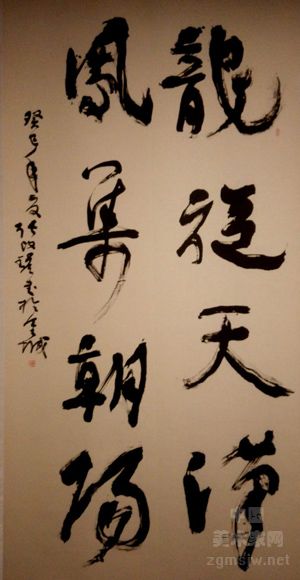 龍從天漢
鳳朝陽
癸巳年夏書於金城
中国
美术家网
zgmsjw.net